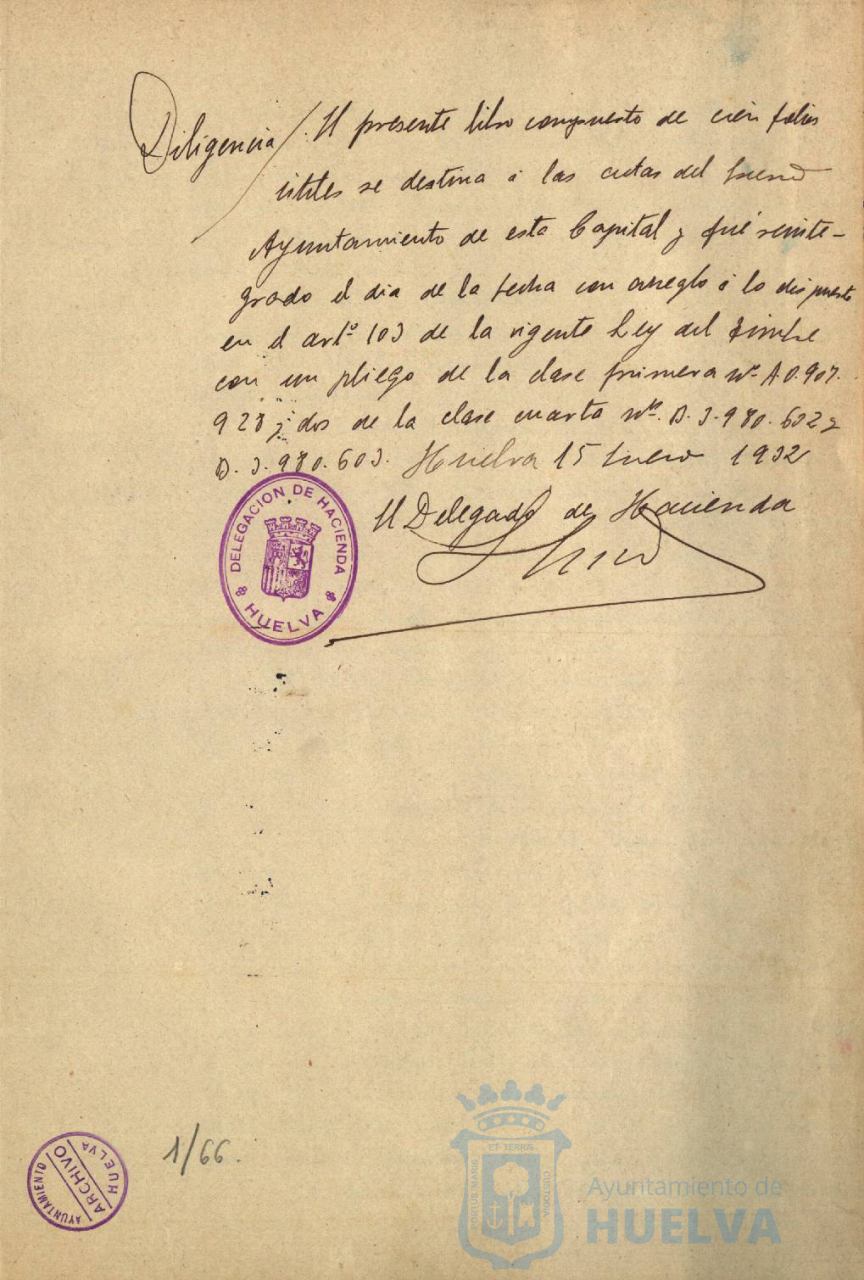 Diligencia / El presente libro compuesto de cien folios
útiles se destina á las actas del
Ayuntamiento de esta Capital y fué reinte-
grado el dia de la fecha con arreglo á lo dispuesto
en el artº 103 de la vigente Ley del Timbre
con un pliego de la clase primera nº A.0.907.
928 y dos de la clase cuarta nºs. D.3.980.602 y
D.3.980.603. Huelva 15 Enero 1932
El Delegado de Hacienda
DELEGACION DE HACIENDA
HUELVA
AYUNTAMIENTO
ARCHIVO
HUELVA
1/66.
PORTUS MARIS ET TERRÆ CUSTODIA
Ayuntamiento de
HUELVA